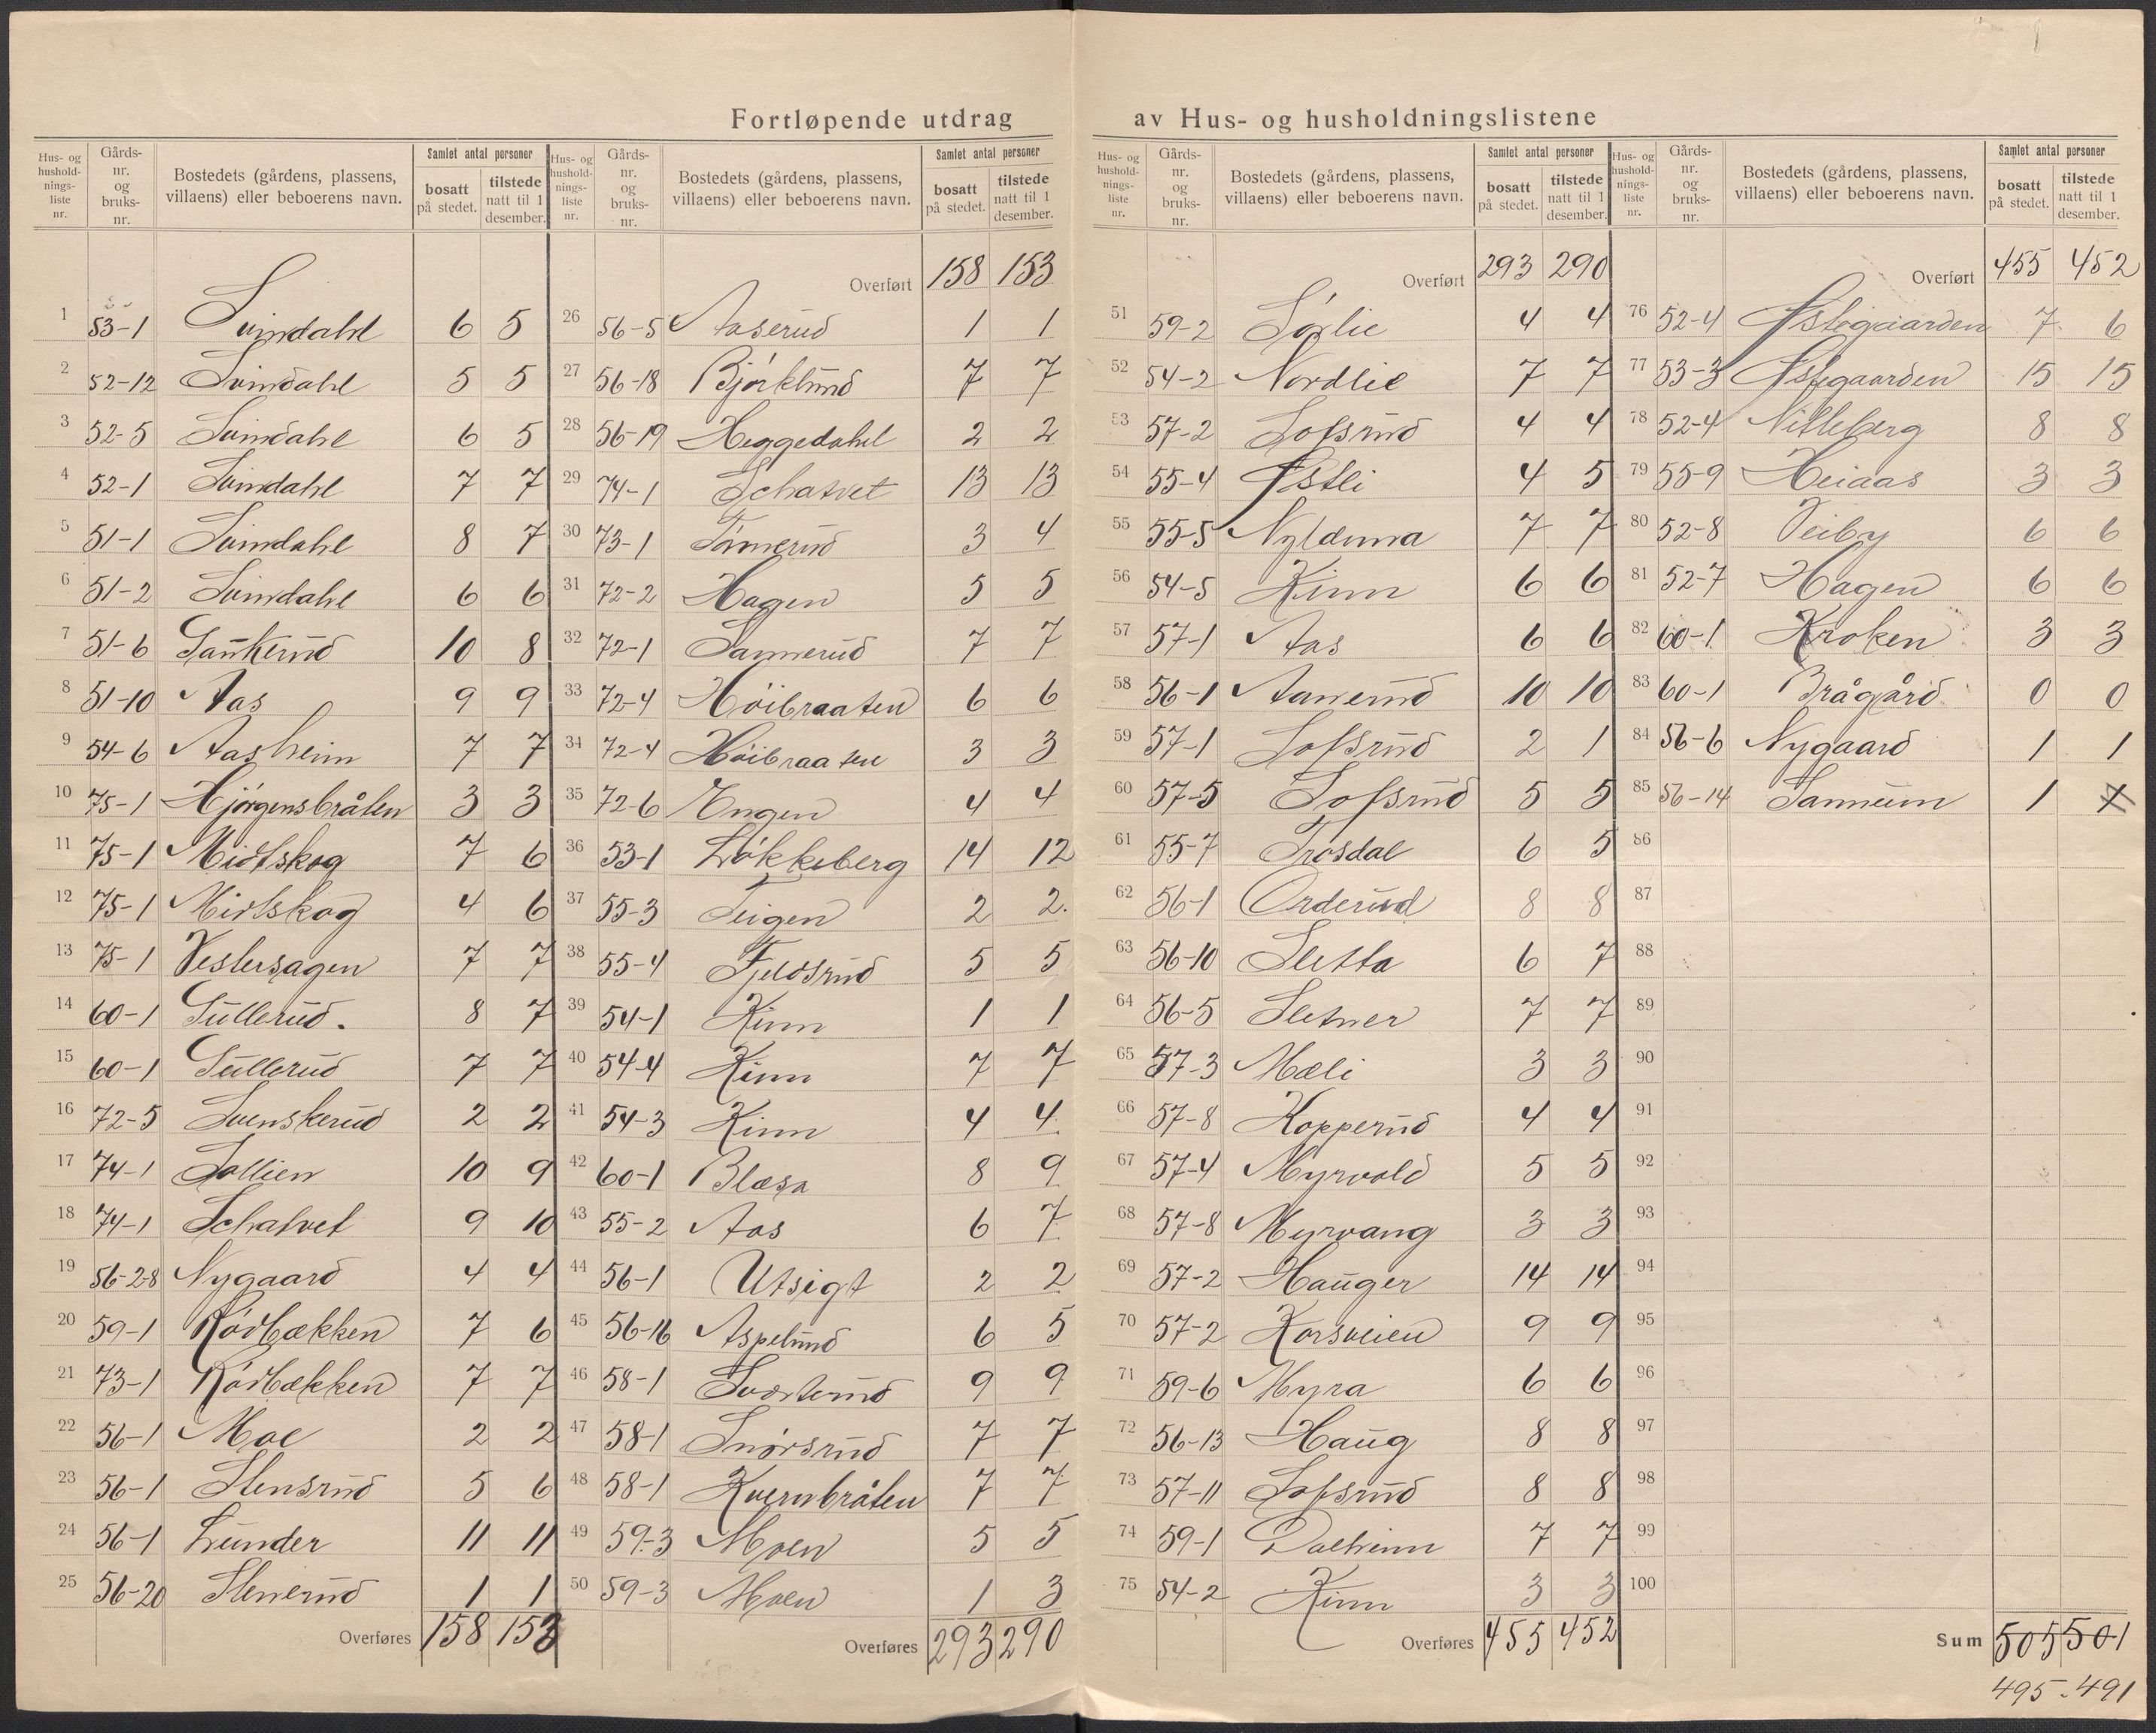 Fortløpende utdrag av Hus- og husholdningslistene
Hus- og hushold- nings- liste nr. | Gårds- nr. og bruks- nr. | Bostedets (gårdens, plassens, villaens) eller beboerens navn. | Samlet antal personer | bosatt på stedet. | tilstede natt til 1 desember.
1 53-1 Svindahl 6 5
2 52-12 Svindahl 5 5
3 52-5 Svindahl 6 5
4 52-1 Svindahl 7 7
5 51-1 Svindahl 8 7
6 51-2 Svindahl 6 6
7 51-6 Sankerud 10 8
8 51-10 Aas 9 9
9 54-6 Aasheim 7 7
10 75-1 Hjørgensbråten 3 3
11 75-1 Midtskog 7 6
12 75-1 Midtskog 4 6
13 75-1 Vestersagen 7 7
14 60-1 Gullerud. 8 7
15 60-1 Gullerud 7 7
16 72-5 Svenskerud 2 2
17 74-1 Sollien 10 9
18 74-1 Schatvet 9 10
19 56-2-8 Nygaard 4 4
20 59-1 Rödbækken 7 6
21 73-1 Rödbækken 7 7
22 56-1 Moe 2 2
23 56-1 Stensrud 5 6
24 56-1 Lunder 11 11
25 56-20 Stenerud 1 1
Overføres 158 153
Hus- og hushold- nings- liste nr. | Gårds- nr. og bruks- nr. | Bostedets (gårdens, plassens, villaens) eller beboerens navn. | Samlet antal personer | bosatt på stedet. | tilstede natt til 1 desember.
Overført 158 153
26 56-5 Aaserud 1 1
27 56-18 Bjørklund 7 7
28 56-19 Heggedahl 2 2
29 74-1 Schatvet 13 13
30 73-1 Tømerud 3 4
31 72-2 Hagen 5 5
32 72-1 Sannerud 7 7
33 72-4 Høibraaten 6 6
34 72-4 Høibraaten 3 3
35 72-6 Engen 4 4
36 53-1 Løkkeberg 14 12
37 55-3 Teigen 2 2.
38 55-4 Fjeldsrud 5 5
39 54-1 Kinn 1 1
40 54-4 Kinn 7 7
41 54-3 Kinn 4 4
42 60-1 Blæsa 8 9
43 55-2 Aas 6 7
44 56-1 Utsigt 2 2
45 56-16 Aspelund 6 5
46 58-1 Svarterud 9 9
47 58-1 Snørsrud 7 7
48 58-1 Kvernbråten 7 7
49 59-3 Moen 5 5
50 59-3 Moen 1 3
Overføres 293 290
Hus- og hushold- nings- liste nr. | Gårds- nr. og bruks- nr. | Bostedets (gårdens, plassens, villaens) eller beboerens navn. | Samlet antal personer | bosatt på stedet. | tilstede natt til 1 desember.
Overført 293 290
51 59-2 Sørlie 4 4
52 54-2 Nordlie 7 7
53 57-2 Lofsrud 4 4
54 55-4 Østli 4 5
55 55-5 Nylænna 7 7
56 54-5 Kinn 6 6
57 57-1 Aas 6 6
58 56-1 Aanerud 10 10
59 57-1 Lofsrud 2 1
60 57-5 Lofsrud 5 5
61 55-7 Trosdal 6 5
62 56-1 Orderud 8 8
63 56-10 Sletta 6 7
64 56-5 Sletner 7 7
65 57-3 Mæli 3 3
66 57-8 Kopperud 4 4
67 57-4 Myrvold 5 5
68 57-8 Myrvang 3 3
69 57-2 Hauger 14 14
70 57-2 Korsveien 9 9
71 59-6 Myra 6 6
72 56-13 Haug 8 8
73 57-11 Lofsrud 8 8
74 59-1 Dalheim 7 7
75 54-2 Kinn 3 3
Overføres 455 452
Hus- og hushold- nings- liste nr. | Gårds- nr. og bruks- nr. | Bostedets (gårdens, plassens, villaens) eller beboerens navn. | Samlet antal personer | bosatt på stedet. | tilstede natt til 1 desember.
Overført 455 452
76 52-4 Østegaarden 7 6
77 53-3 Østegaarden 15 15
78 52-4 Nilleberg 8 8
79 55-9 Heiaas 3 3
80 52-8 Veiby 6 6
81 52-7 Hagen 6 6
82 60-1 Kroken 3 3
83 60-1 Brågård 0 0
84 56-6 Nygaard 1 1
85 56-14 Sannum 1
86
87
88
89
90
91
92
93
94
95
96
97
98
99
100
Sum 505 501
495. 491